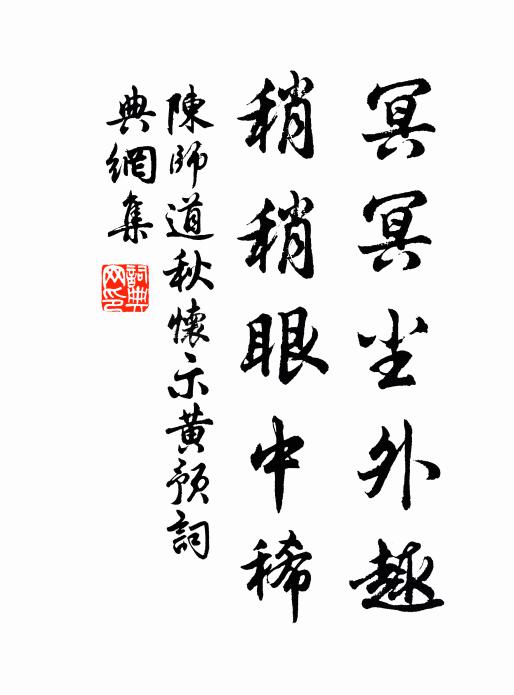 冥冥尘外趣
稍稍眼中稀
陳師道秋懷示黄預詞
典網集
詞典网印